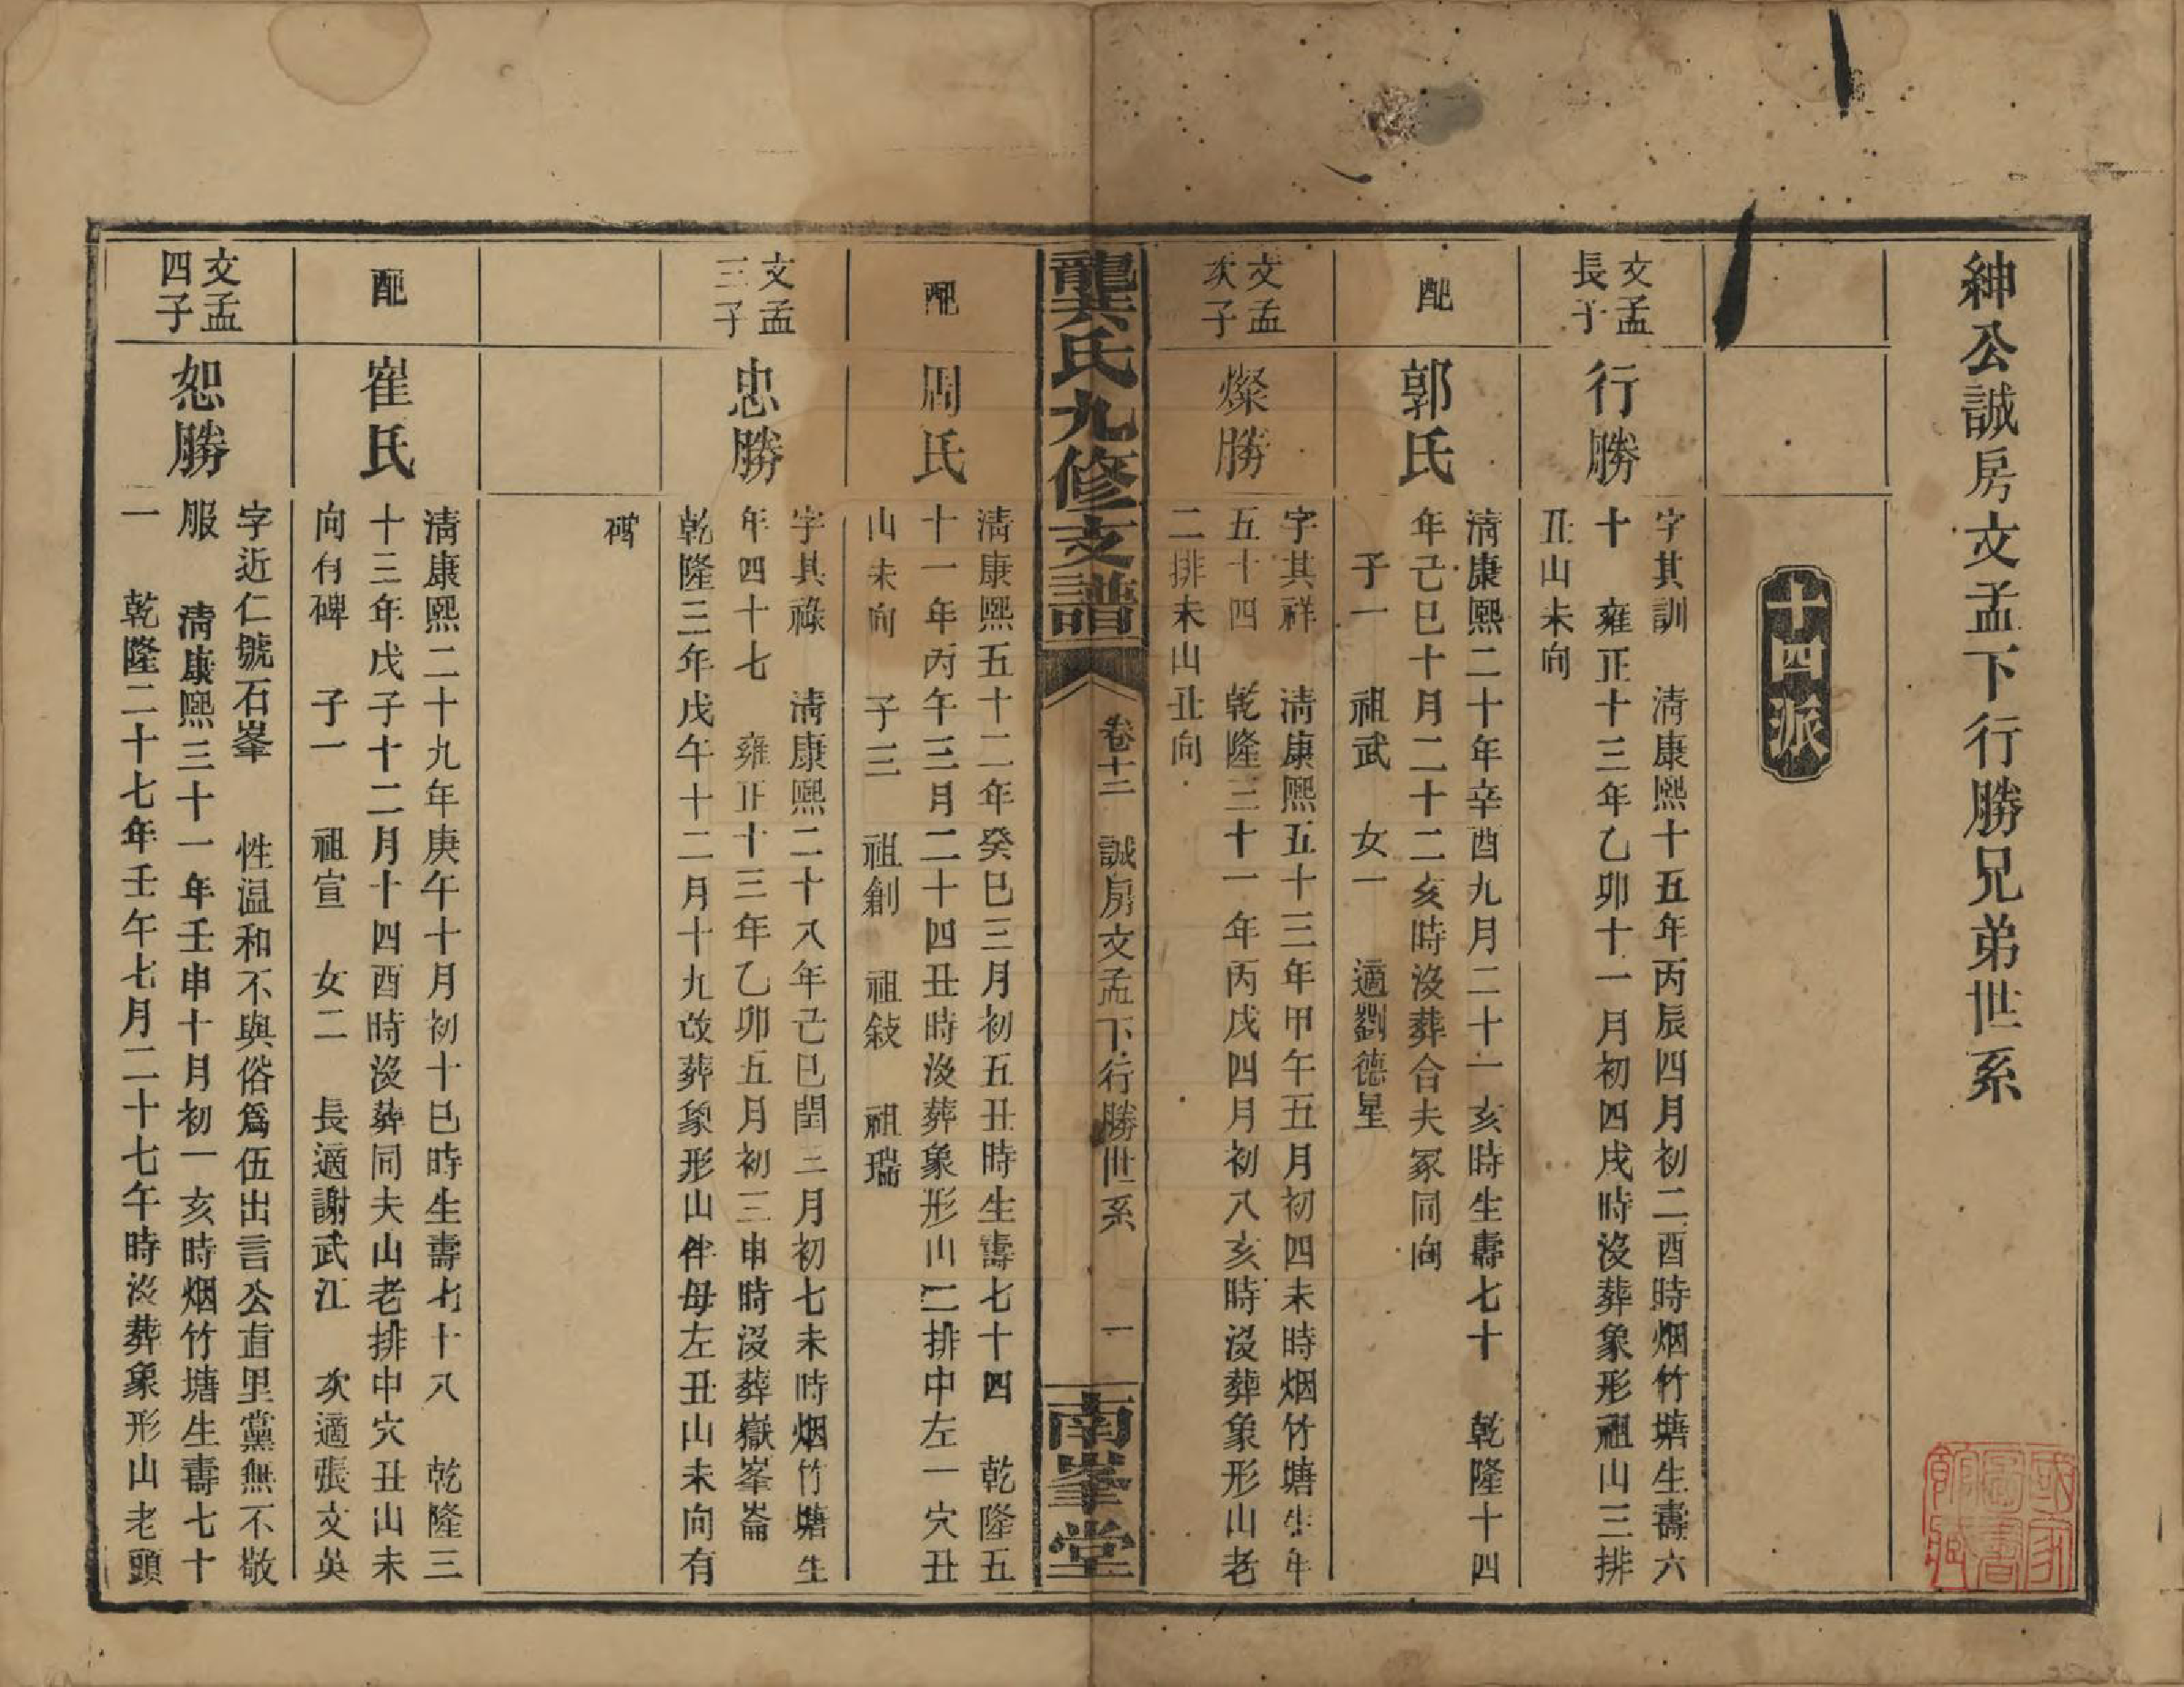 紳公誠房文孟下行勝兄弟世系
十四派
文孟
長子
行勝
字其訓　清康熙十五年丙辰四月初二酉時烟竹塘生壽六
十　雍正十三年乙卯十一月初四戌時沒葬象形祖山三排
丑山未向
配
郭氏
清康熙二十年辛酉九月二十一亥時生壽七十　乾隆十四
年己巳十月二十二亥時沒葬合夫冢同向
子一　祖武　女一　適劉德星
文孟
次子
燦勝
字其祥　清康熙五十三年甲午五月初四未時烟竹塘生年
五十四　乾隆三十一年丙戌四月初八亥時沒葬象形山老
二排未山丑向
龔氏九修支譜
卷十二　誠房文孟下行勝世系
一
南峯堂
配
周氏
清康熙五十二年癸巳三月初五丑時生壽七十四　乾隆五
十一年丙午三月二十四丑時沒葬象形山二排中左一穴丑
山未向　子三　祖創　祖敍　祖瑞
文孟
三子
忠勝
字其祿　清康熙二十八年己巳閏三月初七未時烟竹塘生
年四十七　雍正十三年乙卯五月初三申時沒葬嶽峯崙
乾隆三年戊午十二月十九改葬象形山伴母左丑山未向有
碑
配
崔氏
清康熙二十九年庚午十月初十巳時生壽七十八　乾隆三
十三年戊子十二月十四酉時沒葬同夫山老排中穴丑山未
向有碑　子一　祖宣　女二　長適謝武江　次適張文英
文孟
四子
恕勝
字近仁號石峯　性温和不與俗爲伍出言公直里黨無不敬
服　清康熙三十一年壬申十月初一亥時烟竹塘生壽七十
一　乾隆二十七年壬午七月二十七午時沒葬象形山老頭
國家
圖書
館藏